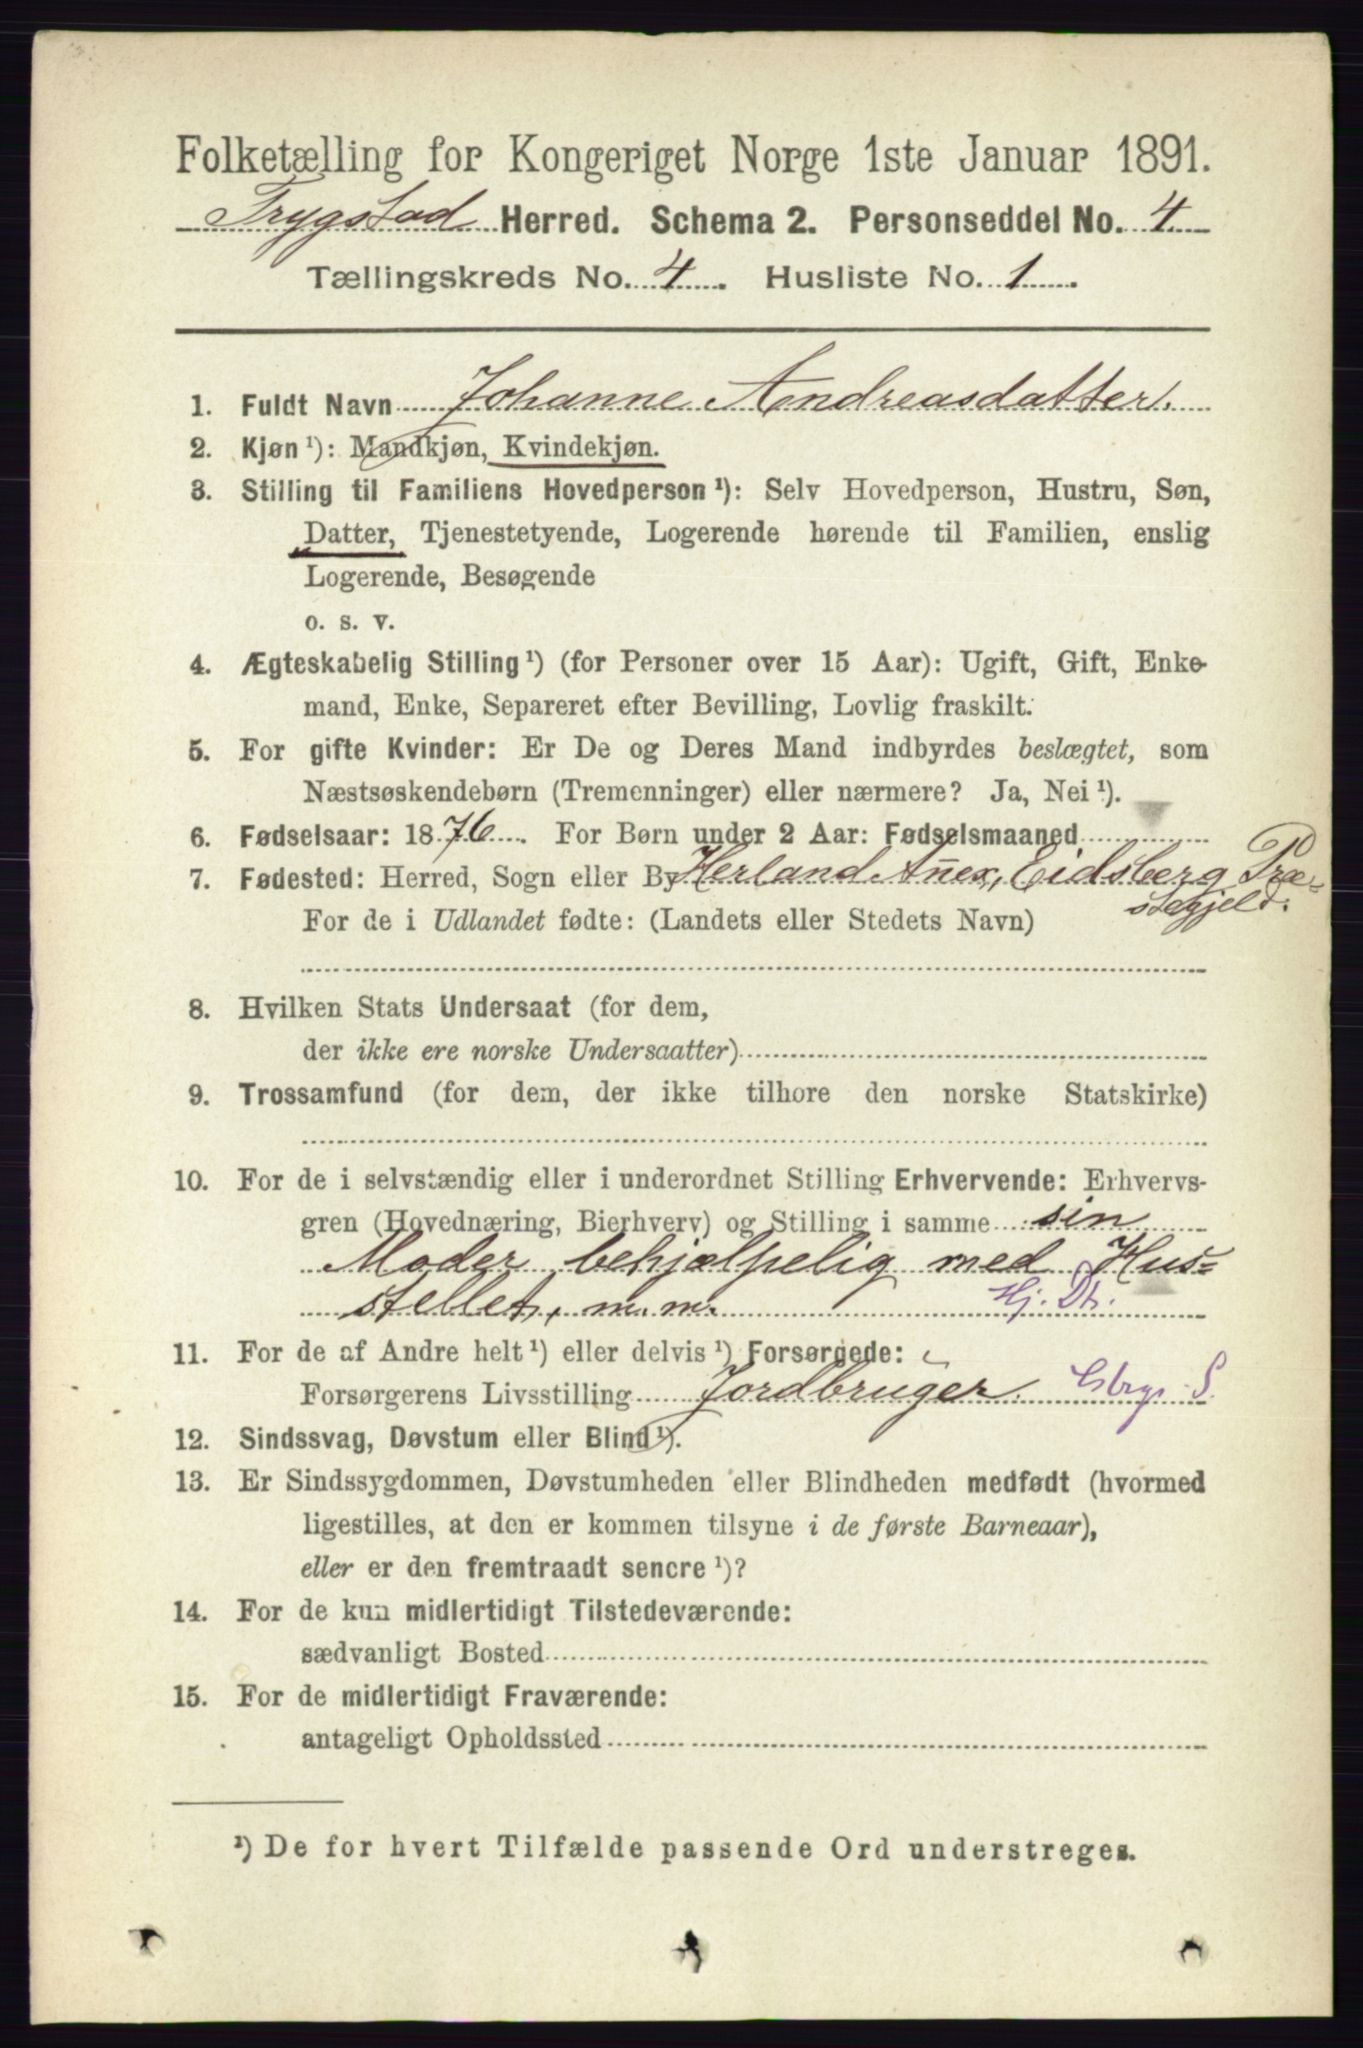 Folketælling for Kongeriget Norge 1ste Januar 1891.
Trygstad Herred. Schema 2. Personseddel No. 4
Tællingskreds No. 4. Husliste No. 1.
1. Fuldt Navn Johanne Andreasdatter.
2. Kjøn ¹): Mandkjøn, Kvindekjøn.
3. Stilling til Familiens Hovedperson ¹): Selv Hovedperson, Hustru, Søn,
Datter, Tjenestetyende, Logerende hørende til Familien, enslig
Logerende, Besøgende
o. s. v.
4. Ægteskabelig Stilling ¹) (for Personer over 15 Aar): Ugift, Gift, Enke-
mand, Enke, Separeret efter Bevilling, Lovlig fraskilt.
5. For gifte Kvinder: Er De og Deres Mand indbyrdes beslægtet, som
Næstsøskendebørn (Tremenninger) eller nærmere? Ja, Nei ¹).
6. Fødselsaar: 1876. For Børn under 2 Aar: Fødselsmaaned
7. Fødested: Herred, Sogn eller By Herland An̄ex, Eidsberg Præ=
stegjeld.
For de i Udlandet fødte: (Landets eller Stedets Navn)
8. Hvilken Stats Undersaat (for dem,
der ikke ere norske Undersaatter)
9. Trossamfund (for dem, der ikke tilhøre den norske Statskirke)
10. For de i selvstændig eller i underordnet Stilling Erhvervende: Erhvervs-
gren (Hovednæring, Bierhverv) og Stilling i samme sin
Moder behjælpelig med Hus=
stellet, m. m. Hj. Dt.
11. For de af Andre helt ¹) eller delvis ¹) Forsørgede:
Forsørgerens Livsstilling Jordbruger. S.
12. Sindssvag, Døvstum eller Blind ¹).
13. Er Sindssygdommen, Døvstumheden eller Blindheden medfødt (hvormed
ligestilles, at den er kommen tilsyne i de første Barneaar),
eller er den fremtraadt senere ¹)?
14. For de kun midlertidigt Tilstedeværende:
sædvanligt Bosted
15. For de midlertidigt Fraværende:
antageligt Opholdssted
¹) De for hvert Tilfælde passende Ord understreges.